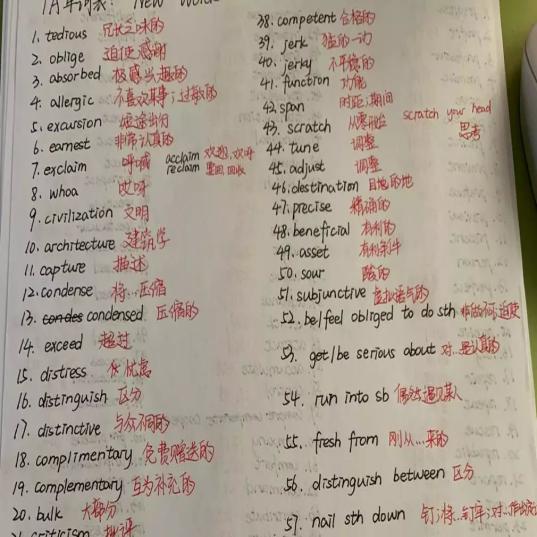 1. tedious 冗长乏味的
2. oblige 迫使感谢
3. absorbed 极感兴趣的
4. allergic 不喜欢某事;过敏的
5. excursion 短途出行
6. earnest 非常认真的
7. exclaim 呼喊 acclaim 欢迎,欢呼
reclaim 要回,回收
8. whoa 哎呀
9. civilization 文明
10. architecture 建筑学
11. capture 描述
12. condense 将…压缩
13. condensed 压缩的
14. exceed 超过
15. distress 忧虑
16. distinguish 区分
17. distinctive 与众不同的
18. complimentary 免费赠送的
19. complementary 互为补充的
20. bulk 大部分
criticism 批评
38. competent 合格的
39. jerk 猛的一动
40. jerky 不平稳的
41. function 功能
42. span 时距;期间
43. scratch 从零开始 scratch your head
思考
44. tune 调整
45. adjust 调整
46. destination 目的地
47. precise 精确的
48. beneficial 有利的
49. asset 有利条件
50. sour 酸的
51. subjunctive 虚拟语气的
52. be/feel obliged to do sth 迫使
53. get/be serious about 对…是认真的
54. run into sb 偶然遇见某人
55. fresh from 刚从…来的
56. distinguish between 区分
57. nail sth down